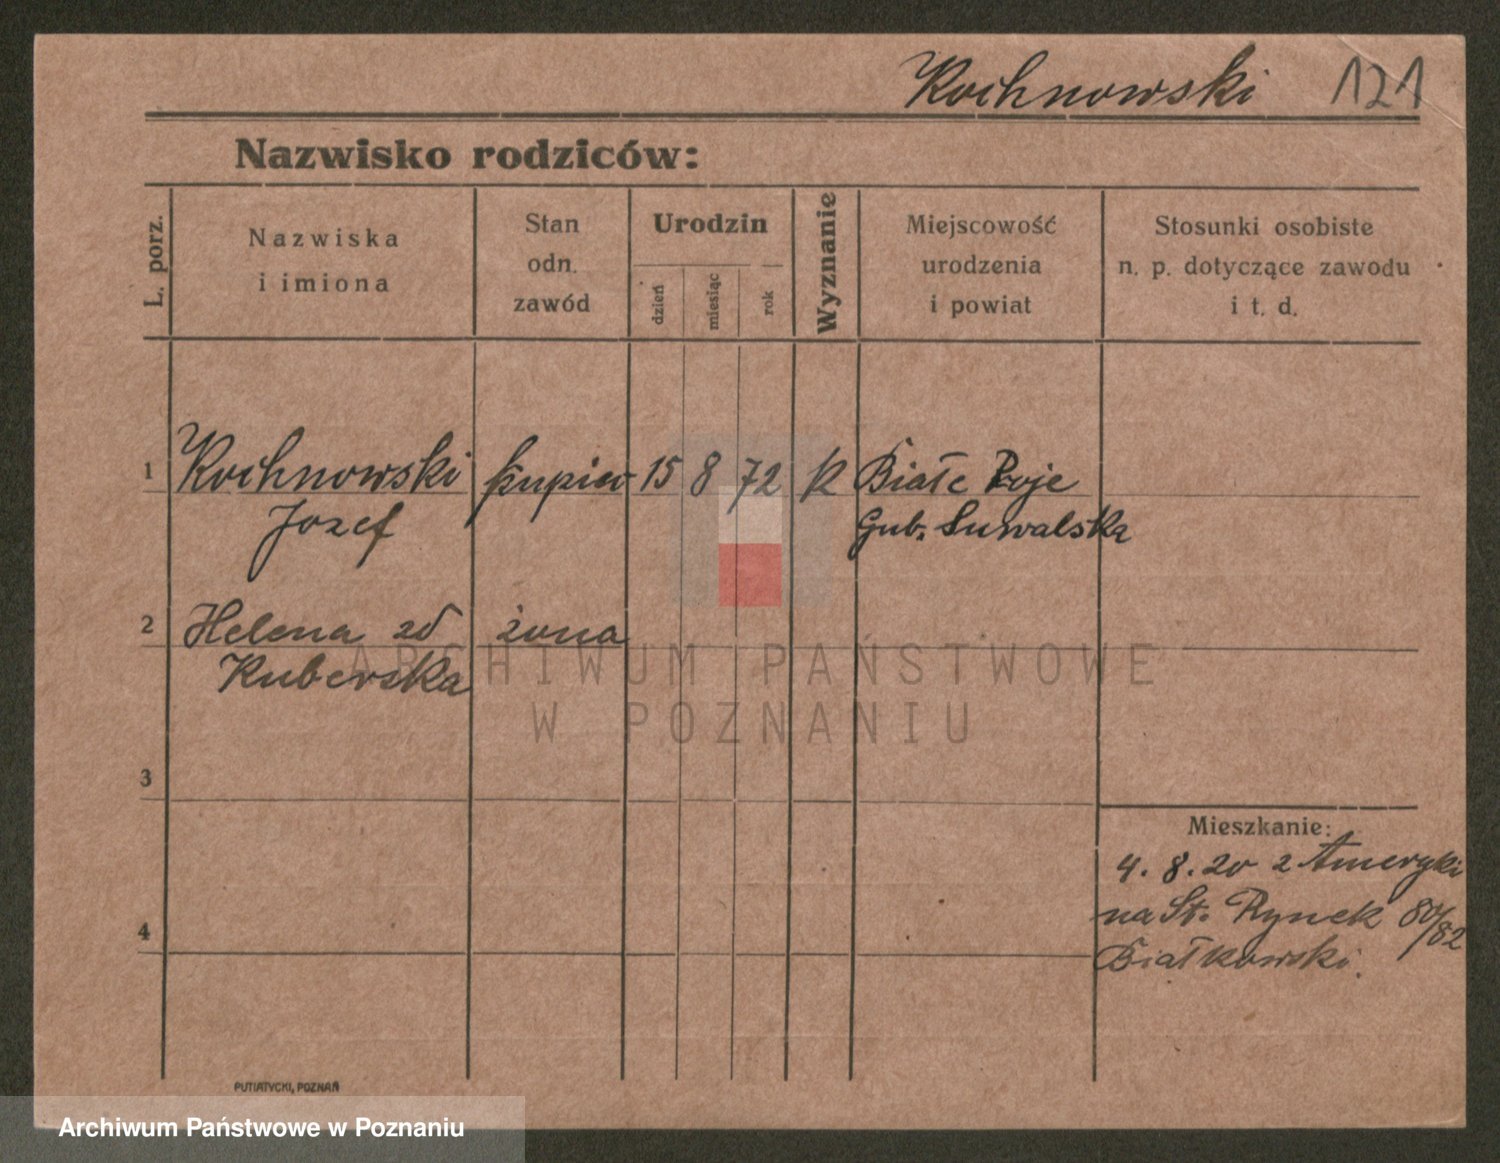 Kochnowski 121
Nazwisko rodziców:
L. porz.
Nazwiska
i imiona
Stan
odn.
zawód
Urodzin
dzień
miesiąc
rok
Wyznanie
Miejscowość
urodzenia
i powiat
Stosunki osobiste
n. p. dotyczące zawodu
i t. d.
1 Kochnowski kupiec 15 8 72 k Białe Roje
Jozef Gub. Suwalska
2 Helena zd żona
Kuberska
3
4
Mieszkanie:
4. 8. 20 z Ameryki
na St. Rynek 80/82
Białkowski.
PUTIATYCKI, POZNAŃ
ARCHIWUM PAŃSTWOWE
W POZNANIU
Archiwum Państwowe w Poznaniu